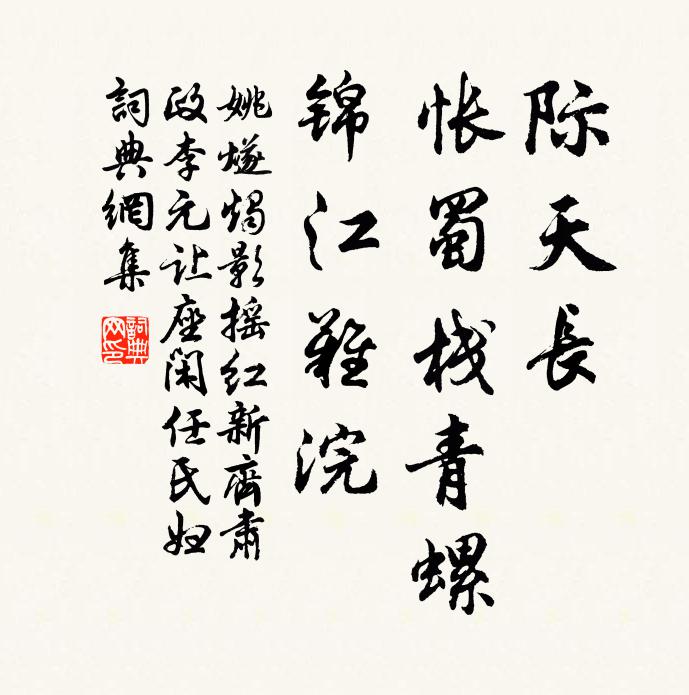 际天长
怅蜀栈青螺
锦江难浣
姚燧烛影摇红新斋肃
政李元让座闲任氏妇
词典網集
詞典
网印